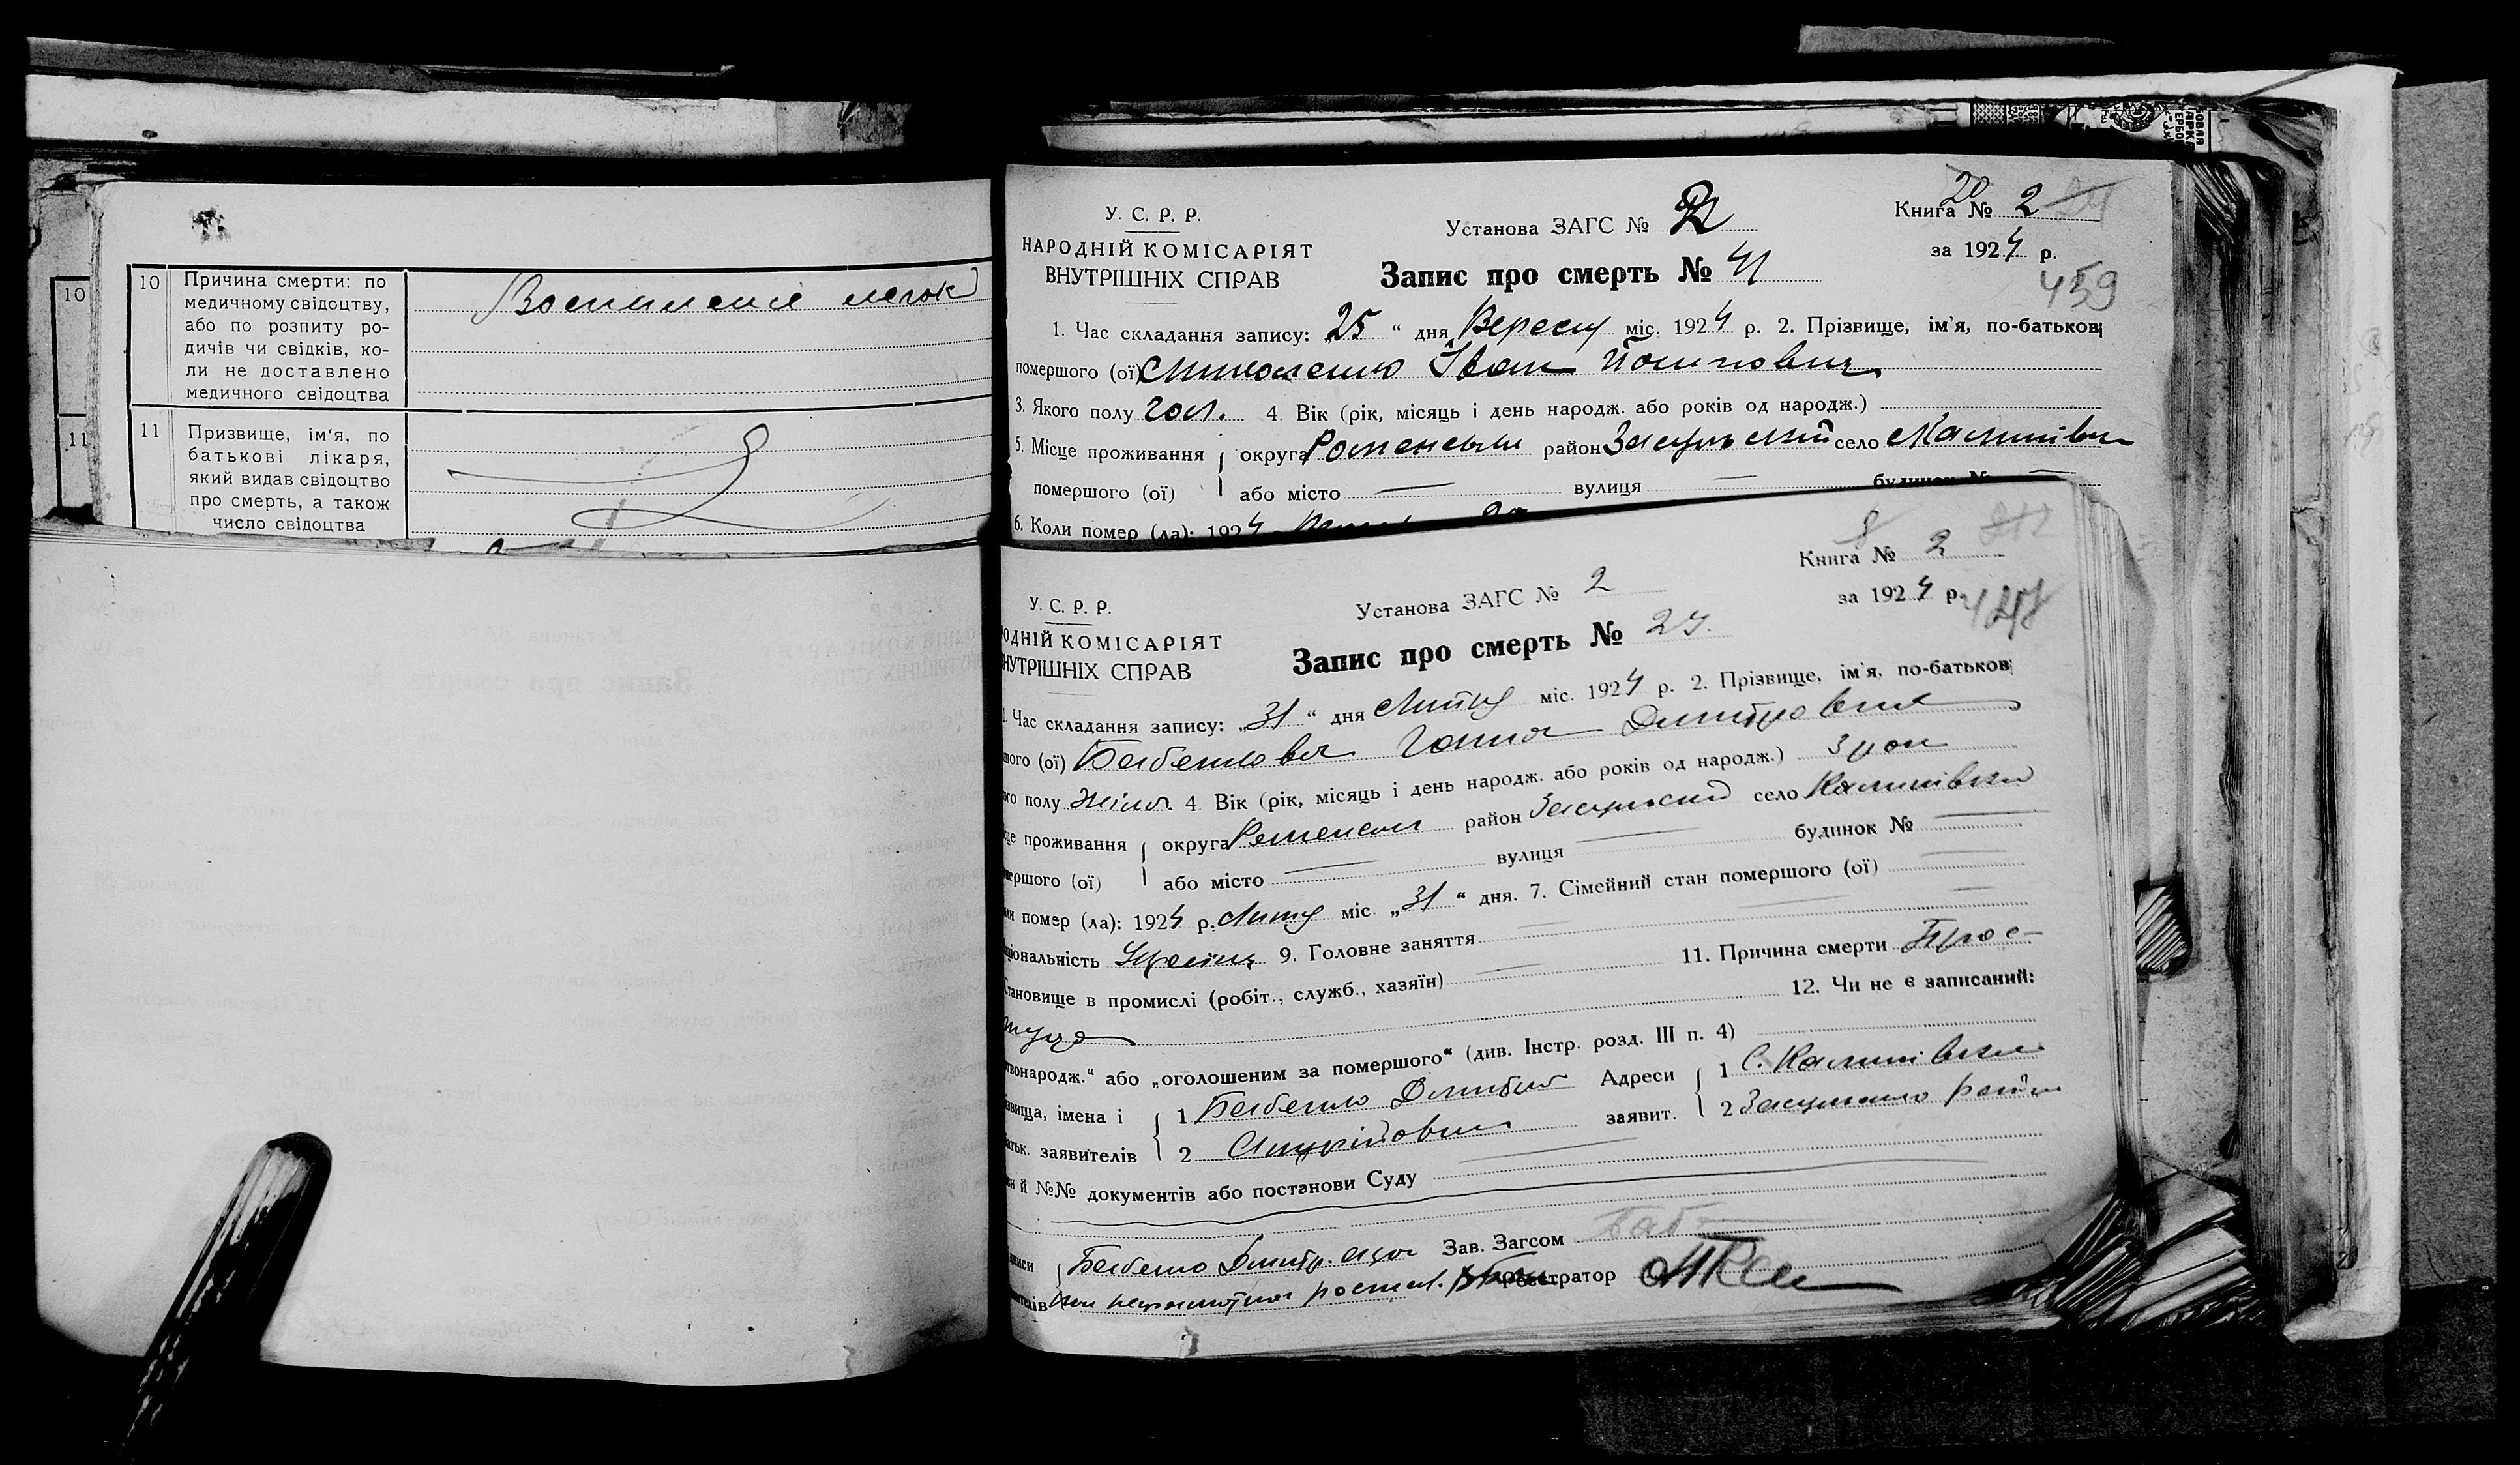 10 Причина смерти: по
медичному свідоцтву,
або по розпиту ро-
дичів чи свідків, ко-
ли не доставлено
медичного свідоцтва
Воспаление легок
11 Призвище, ім'я, по
батькові лікаря,
який видав свідоцтво
про смерть, а також
число свідоцтва
10
11
У. С. Р. Р.
НАРОДНІЙ КОМІСАРІЯТ
ВНУТРІШНІХ СПРАВ
Установа ЗАГС № 2
Книга № 2
20
за 1924 р.
459
Запис про смерть № 41
1. Час складання запису: 25 " дня Вересня міс. 1924 р. 2. Прізвище, ім'я, по-батькові
померлого (ої) Миколенко Іван Йосипович
3. Якого полу чол. 4. Вік (рік, місяць і день народж. або років од народж.)
5. Місце проживання округа Роменськ район Засульський село Калинівка
помершого (ої) або місто — вулиця — будинок № —
6. Коли помер (ла): 1924
Книга № 2
за 1924 р.
У. С. Р. Р.
ОДНІЙ КОМІСАРІЯТ
НУТРІШНІХ СПРАВ
Установа ЗАГС № 2
Запис про смерть № 24.
Час складання запису: „31 " дня Липня міс. 1924 р. 2. Прізвище, ім'я, по-батькові
шого (ої) Ганна Дмитровна
го полу Жіно. 4. Вік (рік, місяць і день народж. або років од народж.) 3 роки
це проживання округа Роменськ район Засульський село Калинівка
мершого (ої) або місто — вулиця — будинок № —
ли помер (ла): 1924 р. Липня міс. „31 " дня. 7. Сімейний стан помершого (ої) —
ціональність Україн. 9. Головне заняття —
тановище в промислі (робіт., служб., хазяїн) — 11. Причина смерти Прос-
туда 12. Чи не є записаний:
твонародж." або „оголошеним за помершого" (див. Інстр. розд. III п. 4)
звища, імена і 1 Дмитро Адреси 1 С. Калинівка
атьк. заявителів 2 Андрійович заявит. 2 Засульського району
й №№ документів або постанови Суду —
Дмитр. Зав. Загсом
неграмотн. розпис. Реєстратор